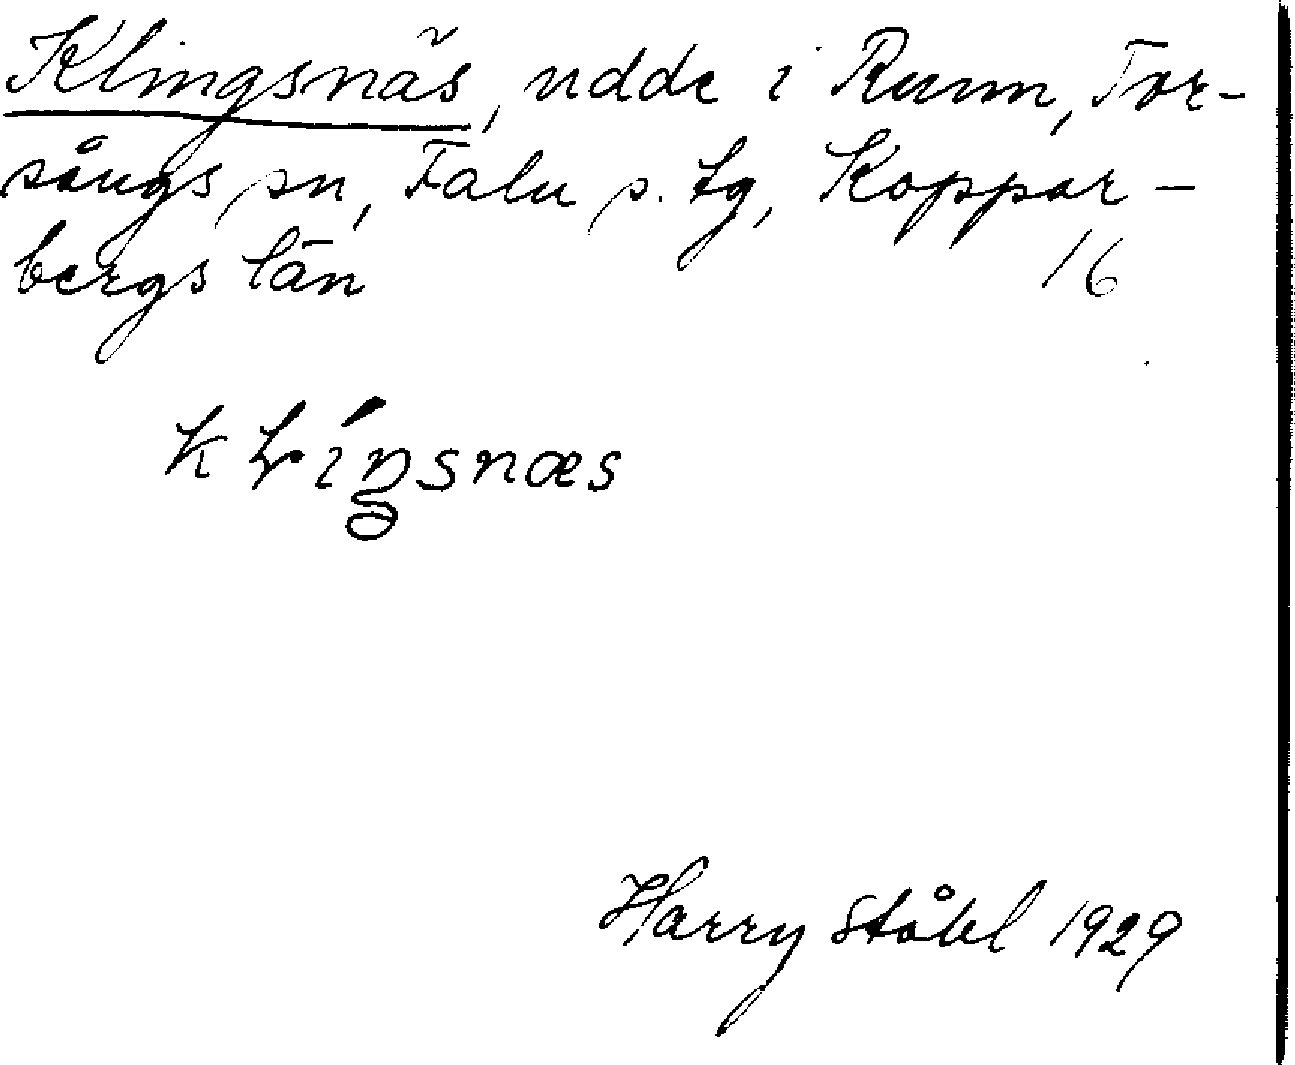 Klingsnäs, udde i Runn, Tor-
sångs sn, Falu s. tg, Koppar-
bergs län
16
Harry Ståhl 1929